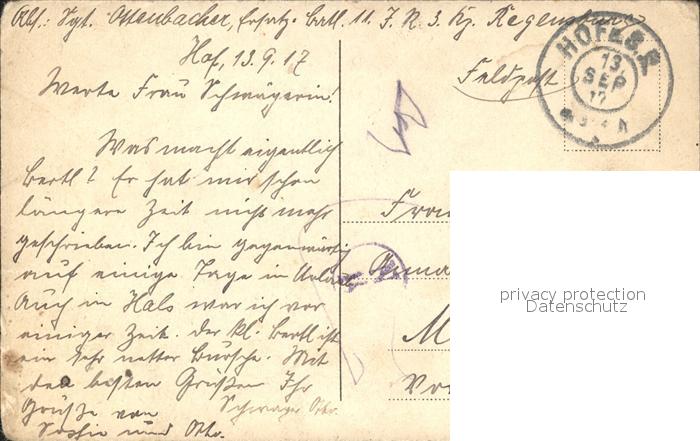 Abs.: Sgt. Ottenbacher, Ersatz-Batl. 11. J. R. 3. Kp. Regensburg
Hof, 13.9.17
Feldpost
HOF
13
SEP
17
Werte Frau Schwägerin!
Was macht eigentlich
Bertl? Er hat mir schon
längere Zeit nichts mehr
geschrieben. Ich bin gegenwärtig
auf einige Tage in Urlaub
Auch in Hals war ich vor
einiger Zeit. Der kl. Bertl ist
ein sehr netter Bursche. Mit
den besten Grüßen Ihr
Schwager Otto.
Grüße von
und Otto.
Frau
Anna
M
Vo
privacy protection
Datenschutz